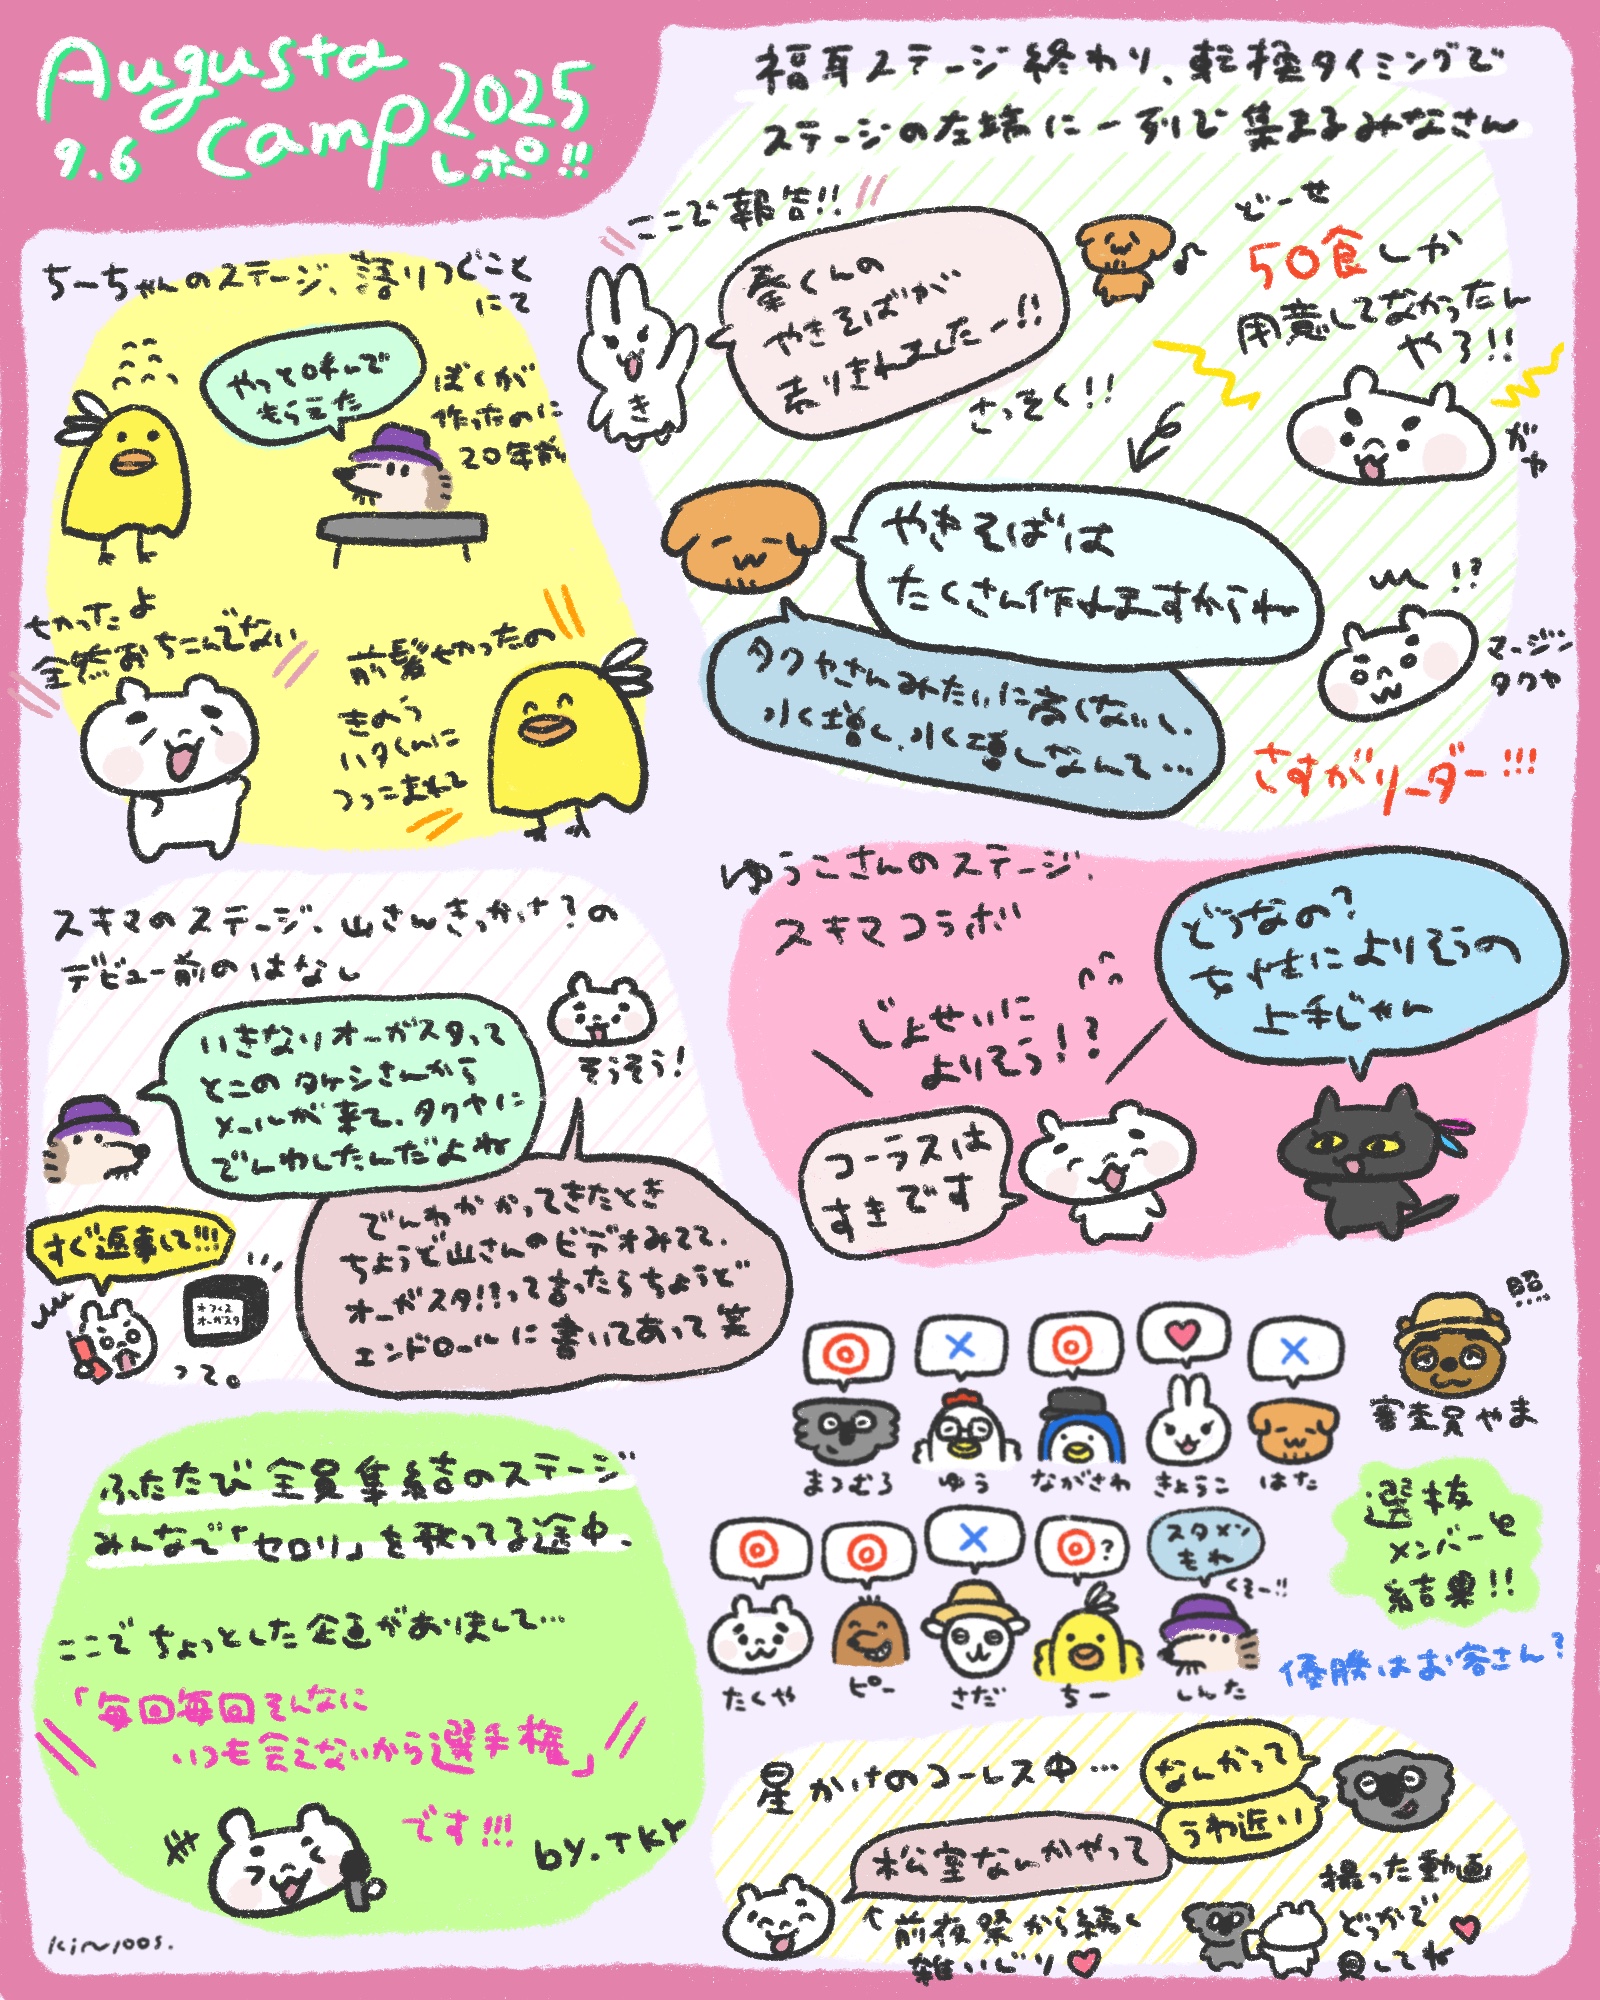 Augusta
Camp 2025
9.6 レポ!!
ちーちゃんのステージ、語りつぐこと
にて
やっと呼んで
もらえた
ぼくが
作ったのに
20年前
ちかったよ
全然おちこんでない
前髪ちかったの
きのう
ハタくんに
つっこまれて
福耳ステージ終わり、転換タイミングで
ステージの左端に一列で集まるみなさん
ここで報告!!
秦くんの
やきそばが
売りきれましたー!!
き
さっそく!!
どーせ
50食しか
用意してなかったん
やろ!!
がや
やきそばは
たくさん作れますからね
タクヤさんみたいに高くないし、
水増し、水増しなんて…
!?
マージン
タクヤ
さすがリーダー!!!
スキマのステージ、山さんきっかけ?の
デビュー前のはなし
いきなりオーガスタって
とこのタケシさんから
メールが来て、タクヤに
でんわしたんだよね
そうそう!
すぐ返事して!!!
オフィス
オーガスタ
って。
でんわかかってきたとき
ちょうど山さんのビデオみてて、
オーガスタ!!って言ったらちょうど
エンドロールに書いてあって笑
ゆうこさんのステージ、
スキマコラボ
どうなの?
女性によりそうの
上手じゃん
じょせいに
よりそう!?
コーラスは
すきです
まつむろ
ゆう
ながさわ
きょうこ
はた
審査員やま
?
スタメン
もれ
くそー!!
たくや
ピー
さだ
ちー
しんた
選抜
メンバーと
結果!!
優勝はお客さん?
ふたたび全員集結のステージ
みんなで「セロリ」を歌ってる途中、
ここでちょっとした企画がありまして…
「毎回毎回そんなに
いつも会えないから選手権」
です!!!
by.TKY
星かけのコーレス中…
なんかって
うわ近い
松室なんかやって
↑前夜祭から続く
雑いじり
撮った動画
どっかで
見してね
kin100s.